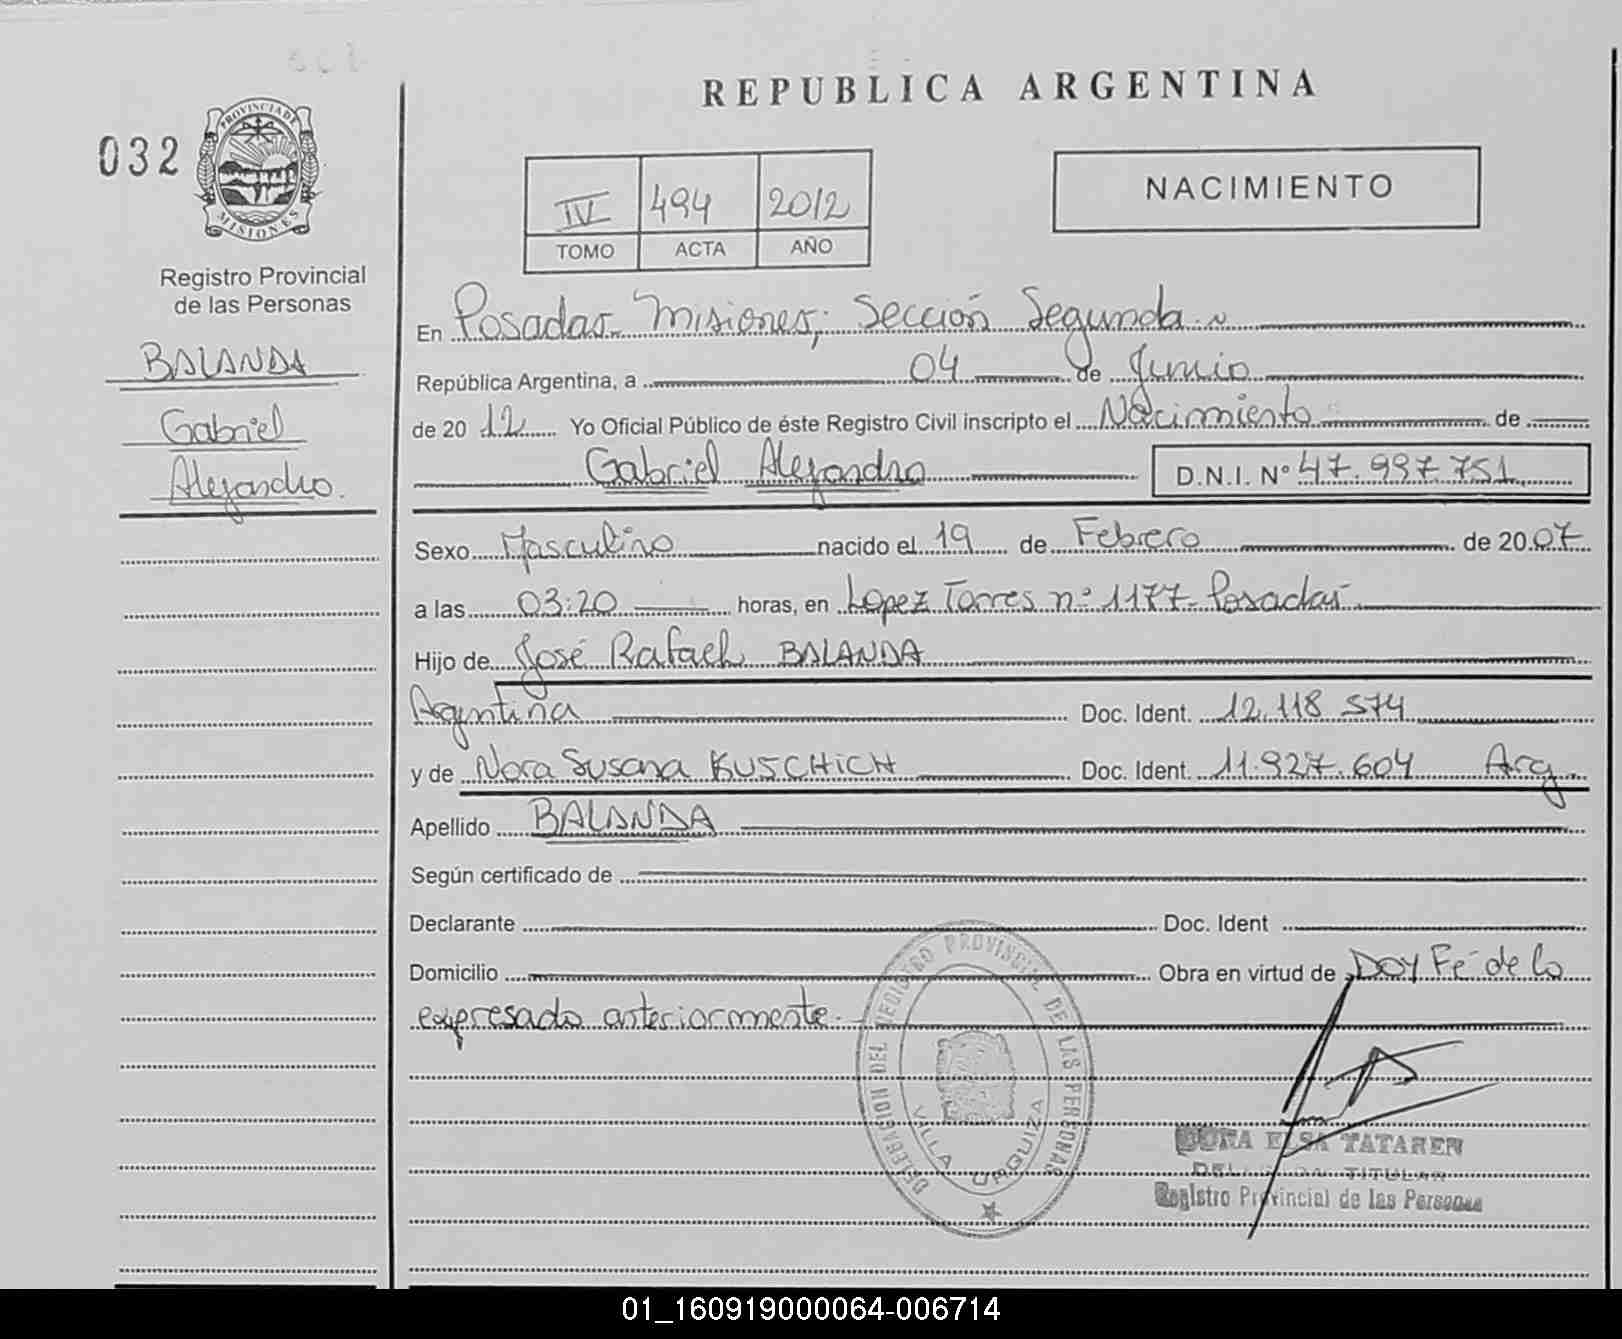 REPUBLICA ARGENTINA
032
PROVINCIA DE
MISIONES
Registro Provincial
de las Personas
BALANDA
Gabriel
Alejandro.
IV 494 2012
TOMO ACTA AÑO
NACIMIENTO
En Posadas Misiones; Sección Segunda
República Argentina, a 04 de Junio
de 2012 Yo Oficial Público de éste Registro Civil inscripto el Nacimiento de
Gabriel Alejandro D.N.I. Nº 47.997.751
Sexo Masculino nacido el 19 de Febrero de 2007
a las 03:20 horas, en Lopez Torres nº 1177- Posadas
Hijo de José Rafael BALANDA
Argentina Doc. Ident. 12.118.574
y de Nora Susana KUSCHICH Doc. Ident. 11.927.604 Arg
Apellido BALANDA
Según certificado de
Declarante Doc. Ident
Domicilio Obra en virtud de Doy Fé de lo
expresado anteriormente
DELEGACION DEL REGISTRO PROVINCIAL DE LAS PERSONAS
VILLA URQUIZA
ELSA TATAREN
TITULAR
Registro Provincial de las Personas
01_160919000064-006714